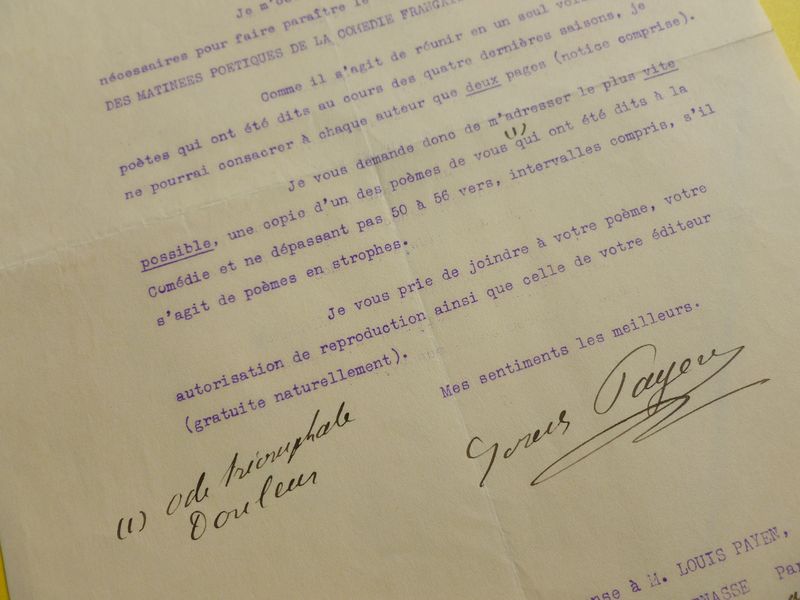 Je m'oc
nécessaires pour faire paraître le
DES MATINEES POETIQUES DE LA COMEDIE FRANCAI
Comme il s'agit de réunir en un seul vol
poètes qui ont été dits au cours des quatre dernières saisons, je
ne pourrai consacrer à chaque auteur que deux pages (notice comprise).
Je vous demande donc de m'adresser le plus vite
(1)
possible, une copie d'un des poèmes de vous qui ont été dits à la
Comédie et ne dépassant pas 50 à 56 vers, intervalles compris, s'il
s'agit de poèmes en strophes.
Je vous prie de joindre à votre poème, votre
autorisation de reproduction ainsi que celle de votre éditeur
(gratuite naturellement).
Mes sentiments les meilleurs.
Louis Payen
(1) Ode triomphale
Douleur
nse à M. LOUIS PAYEN,
NASSE Par